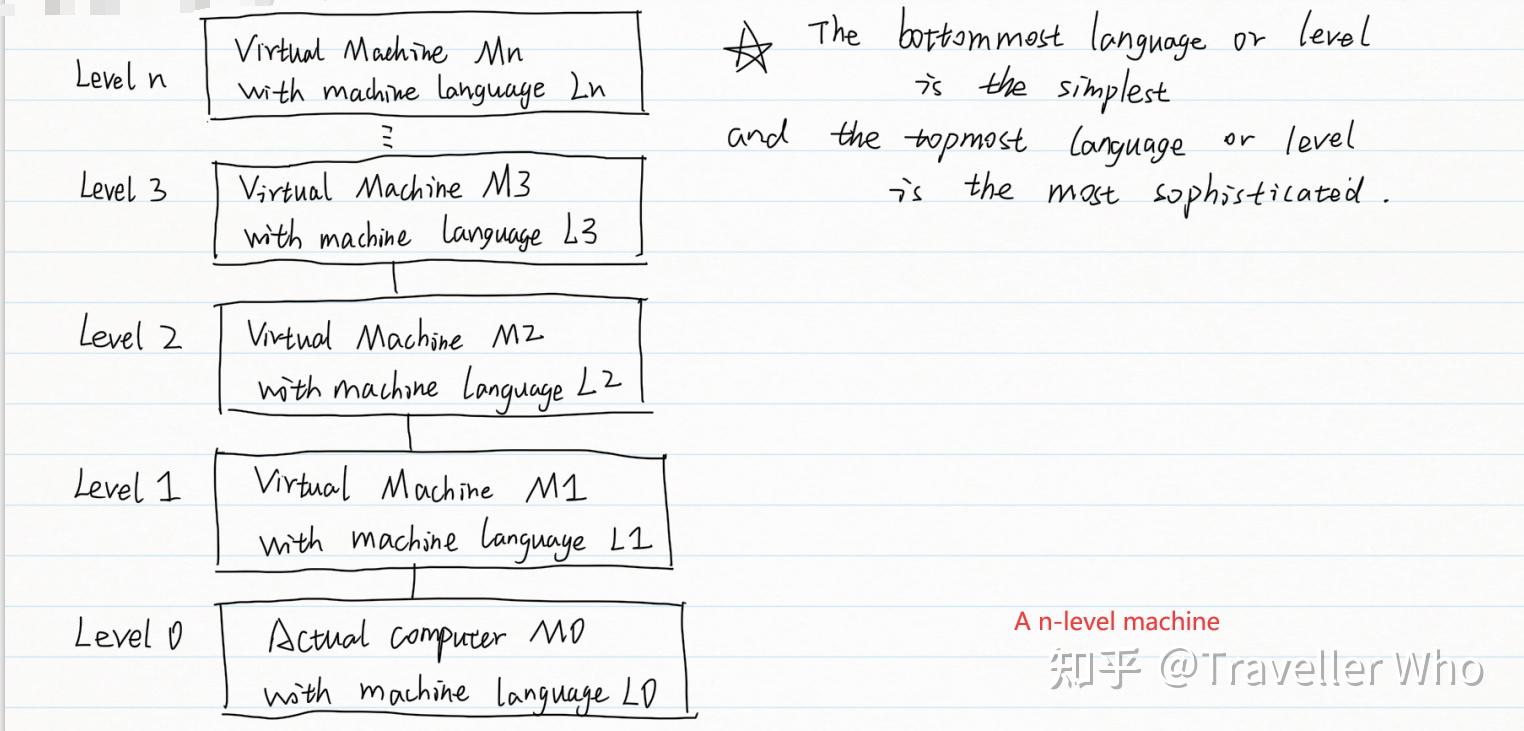 Level n
Virtual Machine Mn
with machine language Ln
Level 3
Virtual Machine M3
with machine language L3
Level 2
Virtual Machine M2
with machine language L2
Level 1
Virtual Machine M1
with machine language L1
Level 0
Actual computer M0
with machine language L0
The bottommost language or level
is the simplest
and the topmost language or level
is the most sophisticated.
A n-level machine
知乎 @Traveller Who